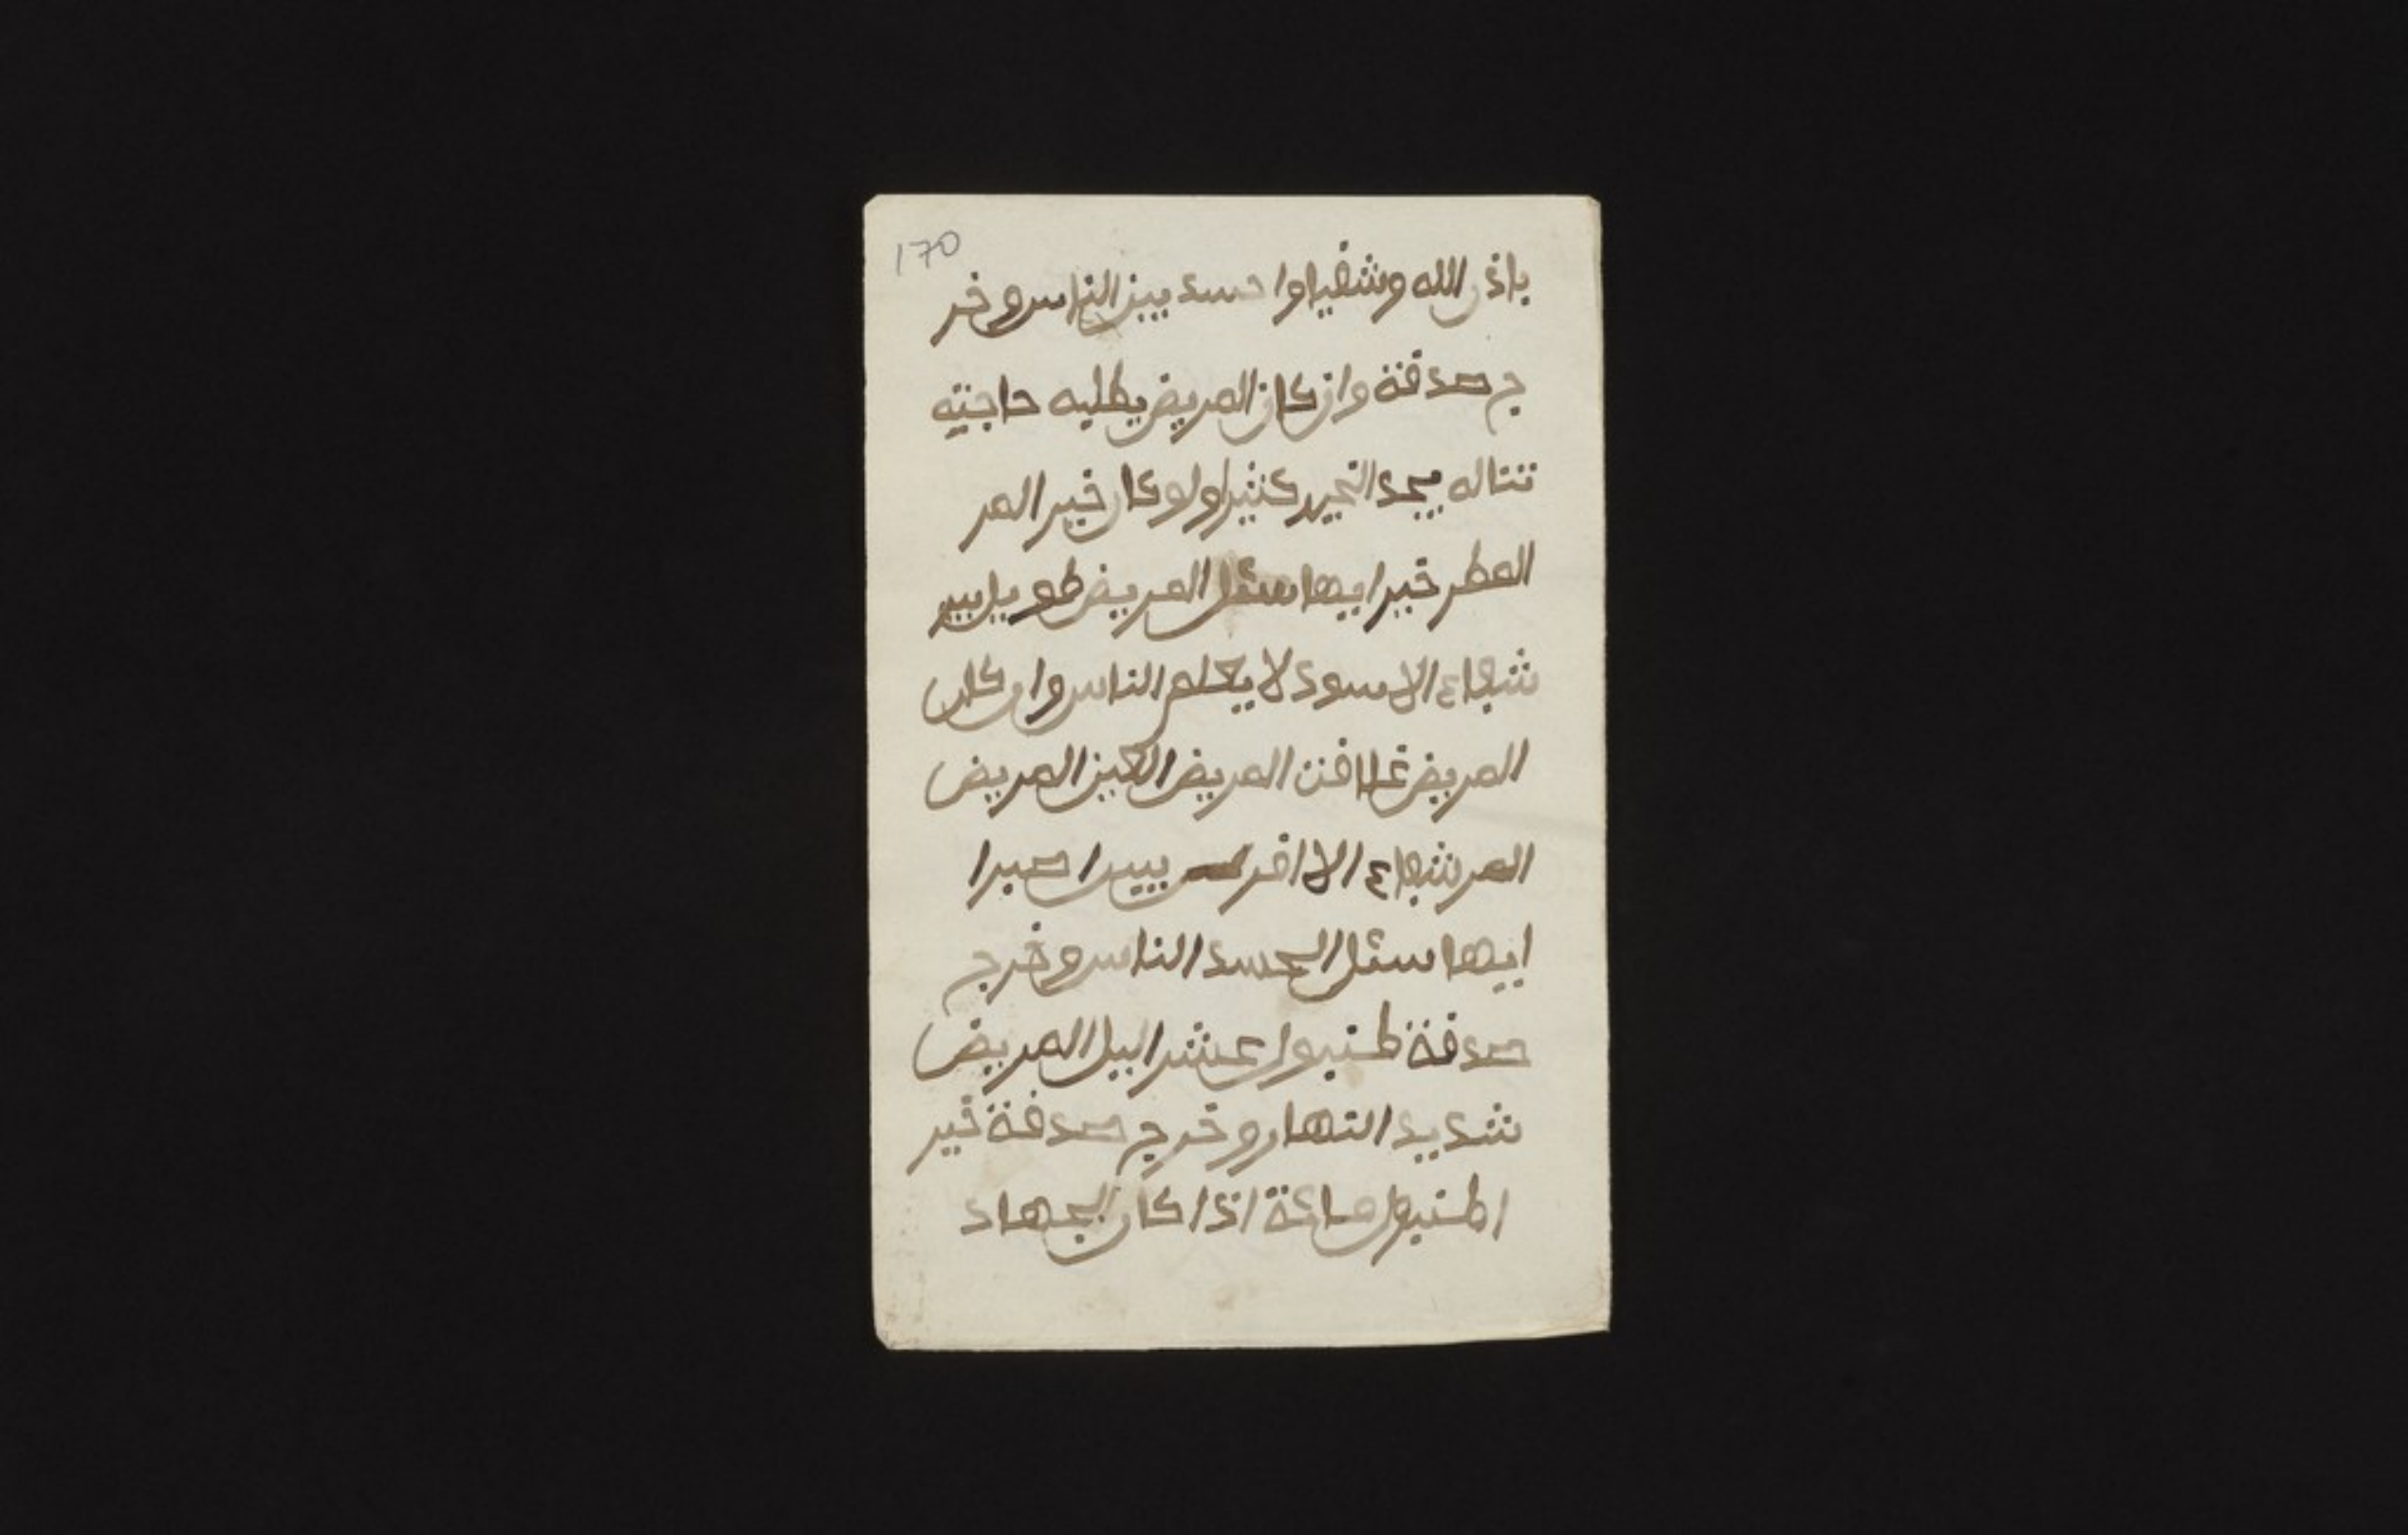 170
باذن الله وشفيا وا حسد بين الناس وخر
ج صدقة وان كان المريض يطلبه حاجته
تناله يجد الخير كثيرا ولو كان خير المر
المطر خيرا ايها سئل المريض طويل بين
شجاع الاسود لا يعلم الناس وان كان
المريض المريض العين المريض
المر شجاع الا اخر بين صبرا
ايها سئل الحسد الناس وخرج
صدقة عشر اليل المريض
شديد النهار وخرج صدقة خير
مائة اذا كان الجهاد